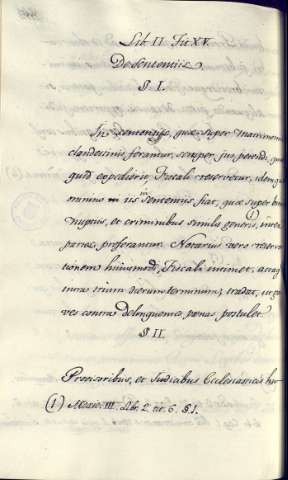 Lib. II. Tit. XV.
De Sententiis.
§. I.
In sententiis, quæ super matrimoniis
clandestinis feruntur, semper jus petendi, quid
quid expedierit, Fiscali reservetur, idem
omnino in iis sententiis fiat, quæ super bi
nuptis, et criminibus similis generis, inter
partes proferantur. Notarius vero reserva
tionem hujusmodi, Fiscali intimet, ac
intra trium dierum terminum, tradat, ut gra
ves contra delinquentes pœnas postulet.
§ II.
Provisoribus, et Judicibus Ecclesiasticis hu
(1) Mexic. III. Lib. 2. tit. 6. §. I.